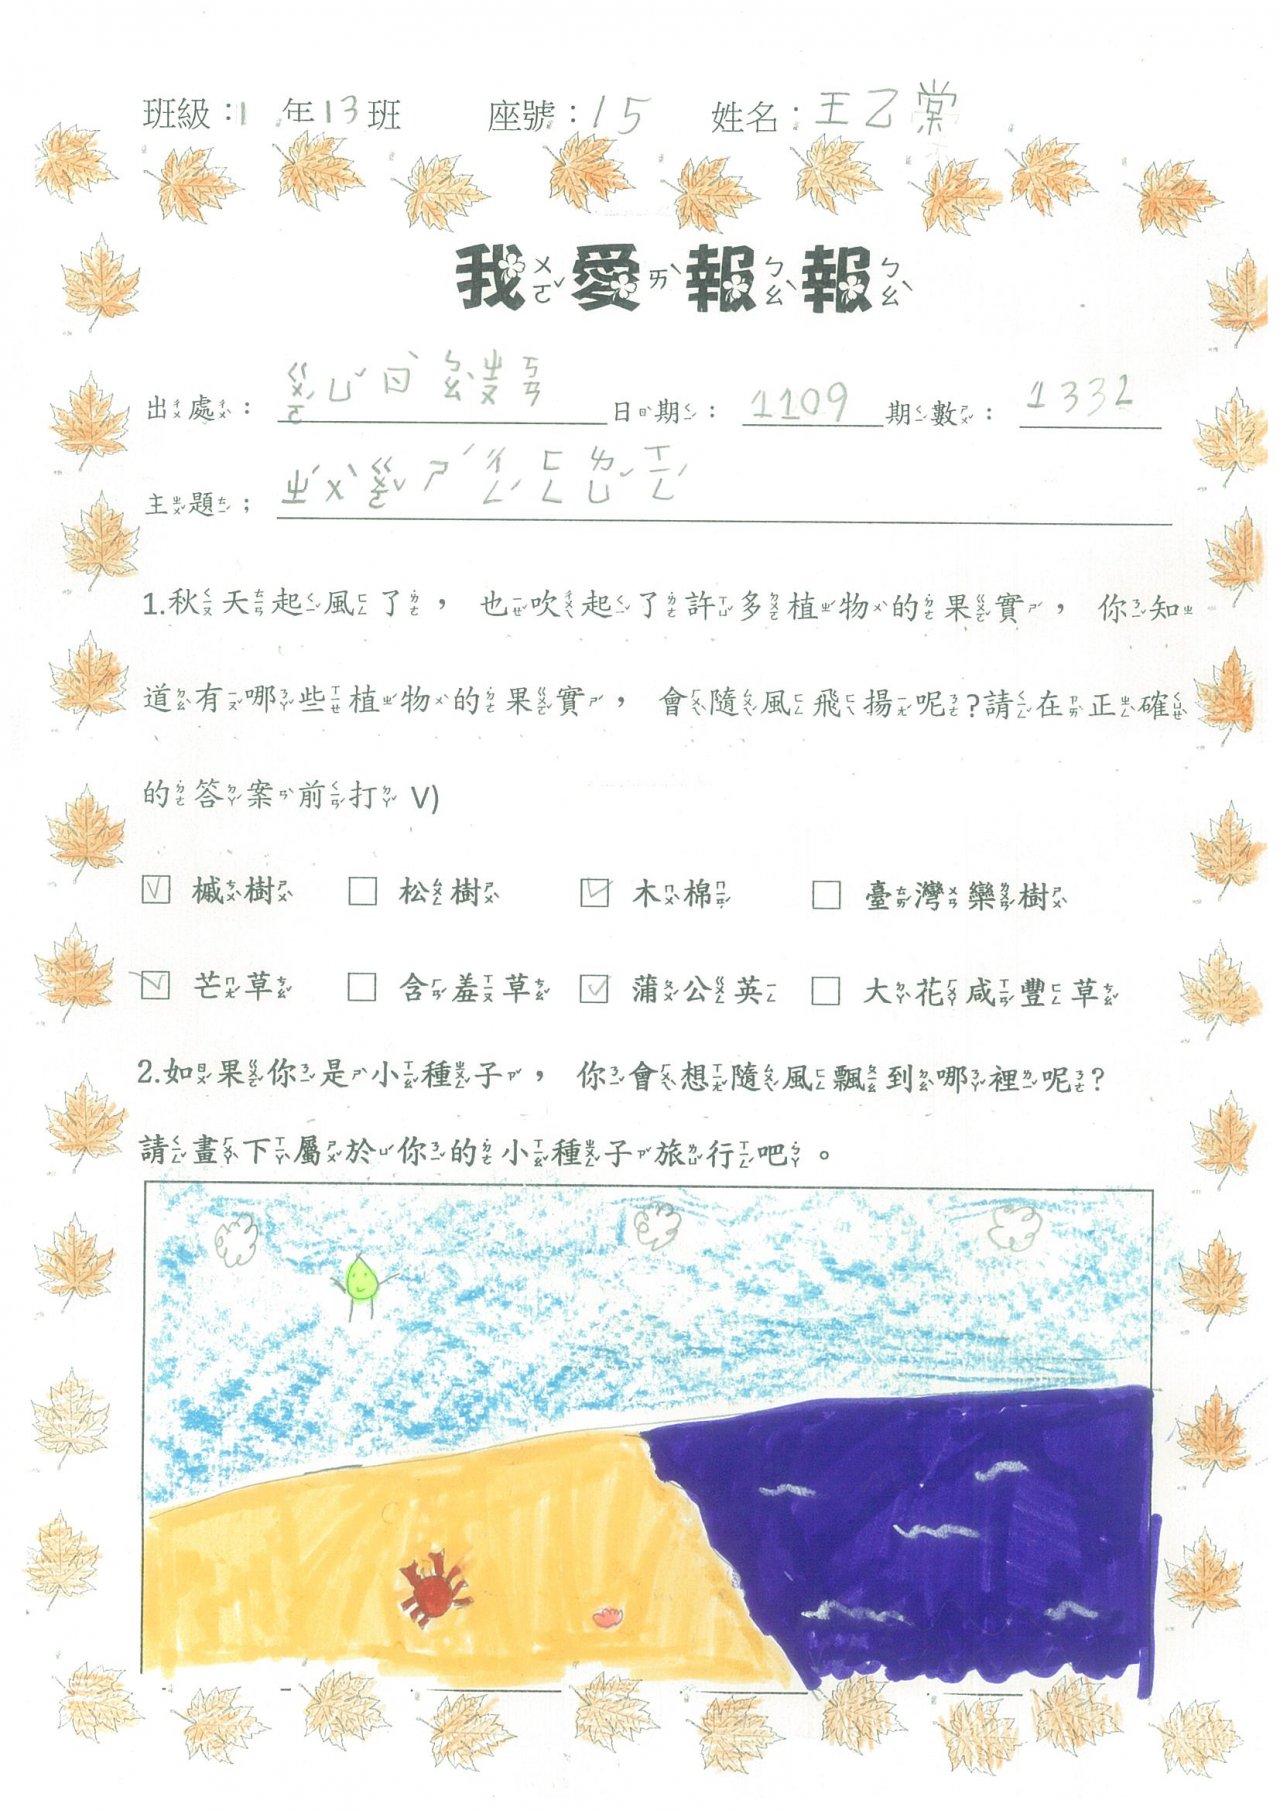 班級：1年13班 座號：15 姓名：王乙棠
我ㄨㄛˇ愛ㄞˋ報ㄅㄠˋ報ㄅㄠˋ
出ㄔㄨ處ㄔㄨˋ：ㄍㄨㄛˊㄩˇㄖˋㄅㄠˋㄓㄡㄎㄢ 日ㄖˋ期ㄑㄧˊ：1109 期ㄑㄧˊ數ㄕㄨˋ：1332
主ㄓㄨˇ題ㄊㄧˊ：ㄓˊㄨˋㄍㄨㄛˇㄕˊㄔㄥˊㄈㄥㄌㄩˇㄒㄧㄥˊ
1.秋ㄑㄧㄡ天ㄊㄧㄢ起ㄑㄧˇ風ㄈㄥ了ㄌㄜ˙，也ㄧㄝˇ吹ㄔㄨㄟ起ㄑㄧˇ了ㄌㄜ˙許ㄒㄩˇ多ㄉㄨㄛ植ㄓˊ物ㄨˋ的ㄉㄜ˙果ㄍㄨㄛˇ實ㄕˊ，你ㄋㄧˇ知ㄓ
道ㄉㄠˋ有ㄧㄡˇ哪ㄋㄚˇ些ㄒㄧㄝ植ㄓˊ物ㄨˋ的ㄉㄜ˙果ㄍㄨㄛˇ實ㄕˊ，會ㄏㄨㄟˋ隨ㄙㄨㄟˊ風ㄈㄥ飛ㄈㄟ揚ㄧㄤˊ呢ㄋㄜ˙?請ㄑㄧㄥˇ在ㄗㄞˋ正ㄓㄥˋ確ㄑㄩㄝˋ
的ㄉㄜ˙答ㄉㄚˊ案ㄢˋ前ㄑㄧㄢˊ打ㄉㄚˇ V)
☑ 槭ㄘㄨˋ樹ㄕㄨˋ □ 松ㄙㄨㄥ樹ㄕㄨˋ ☑ 木ㄇㄨˋ棉ㄇㄧㄢˊ □ 臺ㄊㄞˊ灣ㄨㄢ欒ㄌㄨㄢˊ樹ㄕㄨˋ
☑ 芒ㄇㄤˊ草ㄘㄠˇ □ 含ㄏㄢˊ羞ㄒㄧㄡ草ㄘㄠˇ ☑ 蒲ㄆㄨˊ公ㄍㄨㄥ英ㄧㄥ □ 大ㄉㄚˋ花ㄏㄨㄚ咸ㄒㄧㄢˊ豐ㄈㄥ草ㄘㄠˇ
2.如ㄖㄨˊ果ㄍㄨㄛˇ你ㄋㄧˇ是ㄕˋ小ㄒㄧㄠˇ種ㄓㄨㄥˇ子ㄗˇ，你ㄋㄧˇ會ㄏㄨㄟˋ想ㄒㄧㄤˇ隨ㄙㄨㄟˊ風ㄈㄥ飄ㄆㄧㄠ到ㄉㄠˋ哪ㄋㄚˇ裡ㄌㄧˇ呢ㄋㄜ˙?
請ㄑㄧㄥˇ畫ㄏㄨㄚˋ下ㄒㄧㄚˋ屬ㄕㄨˇ於ㄩˊ你ㄋㄧˇ的ㄉㄜ˙小ㄒㄧㄠˇ種ㄓㄨㄥˇ子ㄗˇ旅ㄌㄩˇ行ㄒㄧㄥˊ吧ㄅㄚ˙。